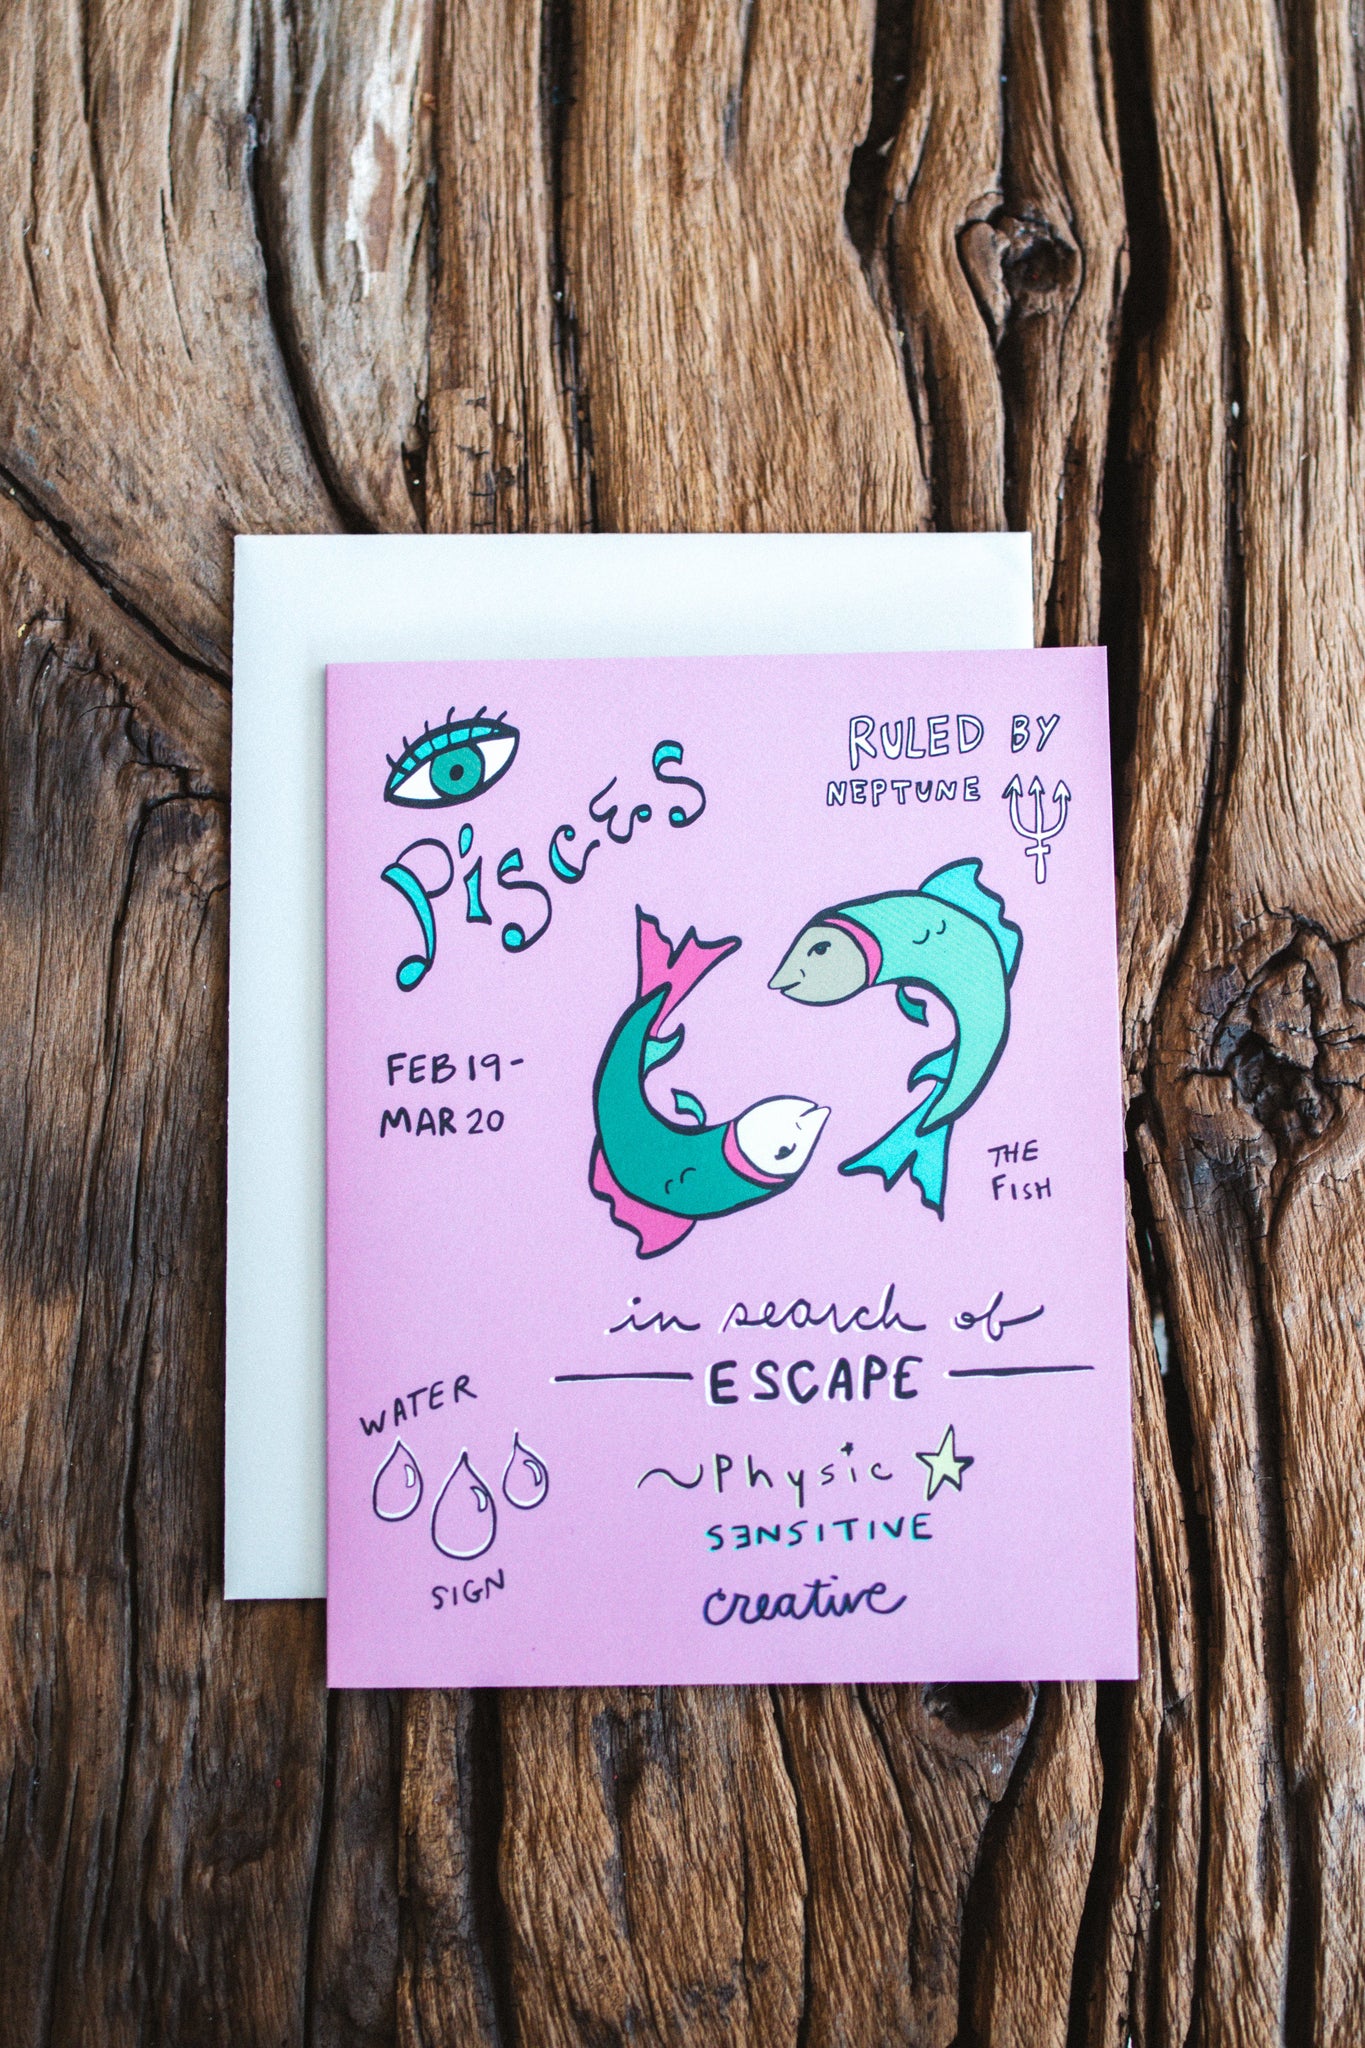 Pisces
RULED BY
NEPTUNE
FEB 19-
MAR 20
THE
FISH
in search of
ESCAPE
~Physic
SENSITIVE
creative
WATER
SIGN